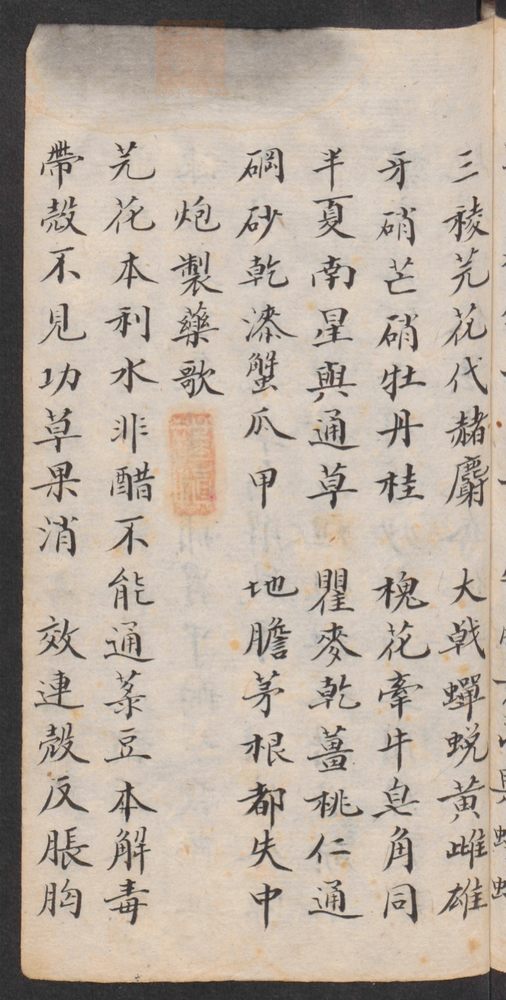 三稜芫花代赭麝 大戟蟬蛻黃雌雄
牙硝芒硝牡丹桂 槐花牽牛皂角同
半夏南星與通草 瞿麥乾薑桃仁通
硇砂乾漆蟹爪甲 地膽茅根都失中
炮製藥歌
芫花本利水非醋不能通菉豆本解毒
帶殼不見功草果消 效連殼反脹胸